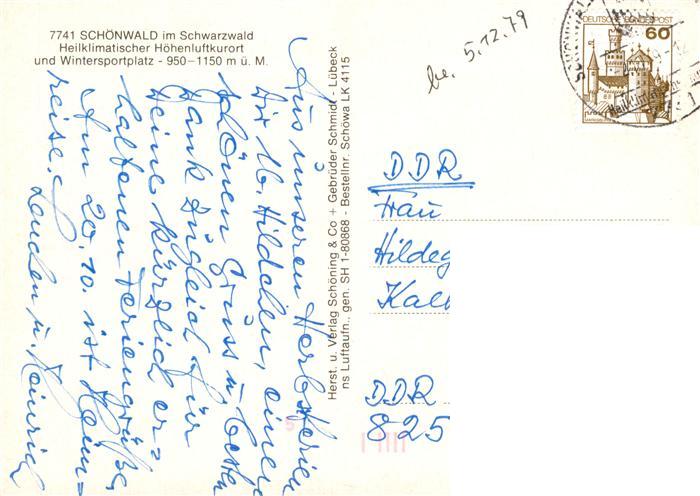 7741 SCHÖNWALD im Schwarzwald
Heilklimatischer Höhenluftkurort
und Wintersportplatz - 950–1150 m ü. M.
be. 5.12.79
DEUTSCHE BUNDESPOST
60
Aus unseren Herbstferien
Dir lb. Hildchen, einen
schönen Gruss u. besten
Dank zugleich für
Deine kürzlich er-
haltenen Feriengrüße.
Am 20.10. ist Heim-
reise.
u. Heinrich
Herst. u. Verlag Schöning & Co + Gebrüder Schmidt - Lübeck
ns Luftaufn., gen. SH 1-80868 - Bestellnr. Schöwa LK 4115
DDR
Frau
Hildeg
Kal
DDR
825